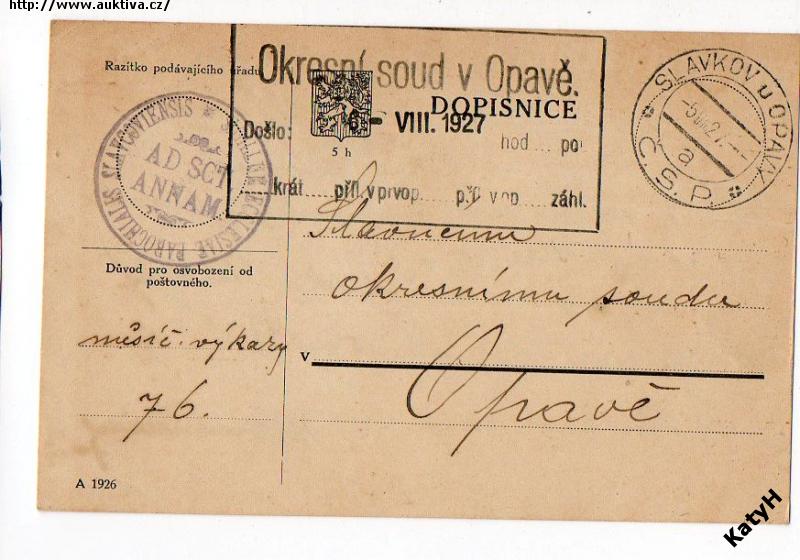 http://www.auktiva.cz/
Razítko podávajícího úřadu
Okresní soud v Opavě.
DOPISNICE
Došlo: 6- VIII. 1927 hod po
5 h
krát příl. v prvop. příl. v op. záhl.
SLAVKOV u OPAVY
-5 VIII 27
a
Č.S.P.
SIGILLUM ECCLESIAE PAROCHIALIS SLAVCOVIENSIS
AD SCT
ANNAM
Slavnému
okresnímu soudu
v
Opavě
Důvod pro osvobození od
poštovného.
měsíč. výkazy
76.
A 1926
KatyH